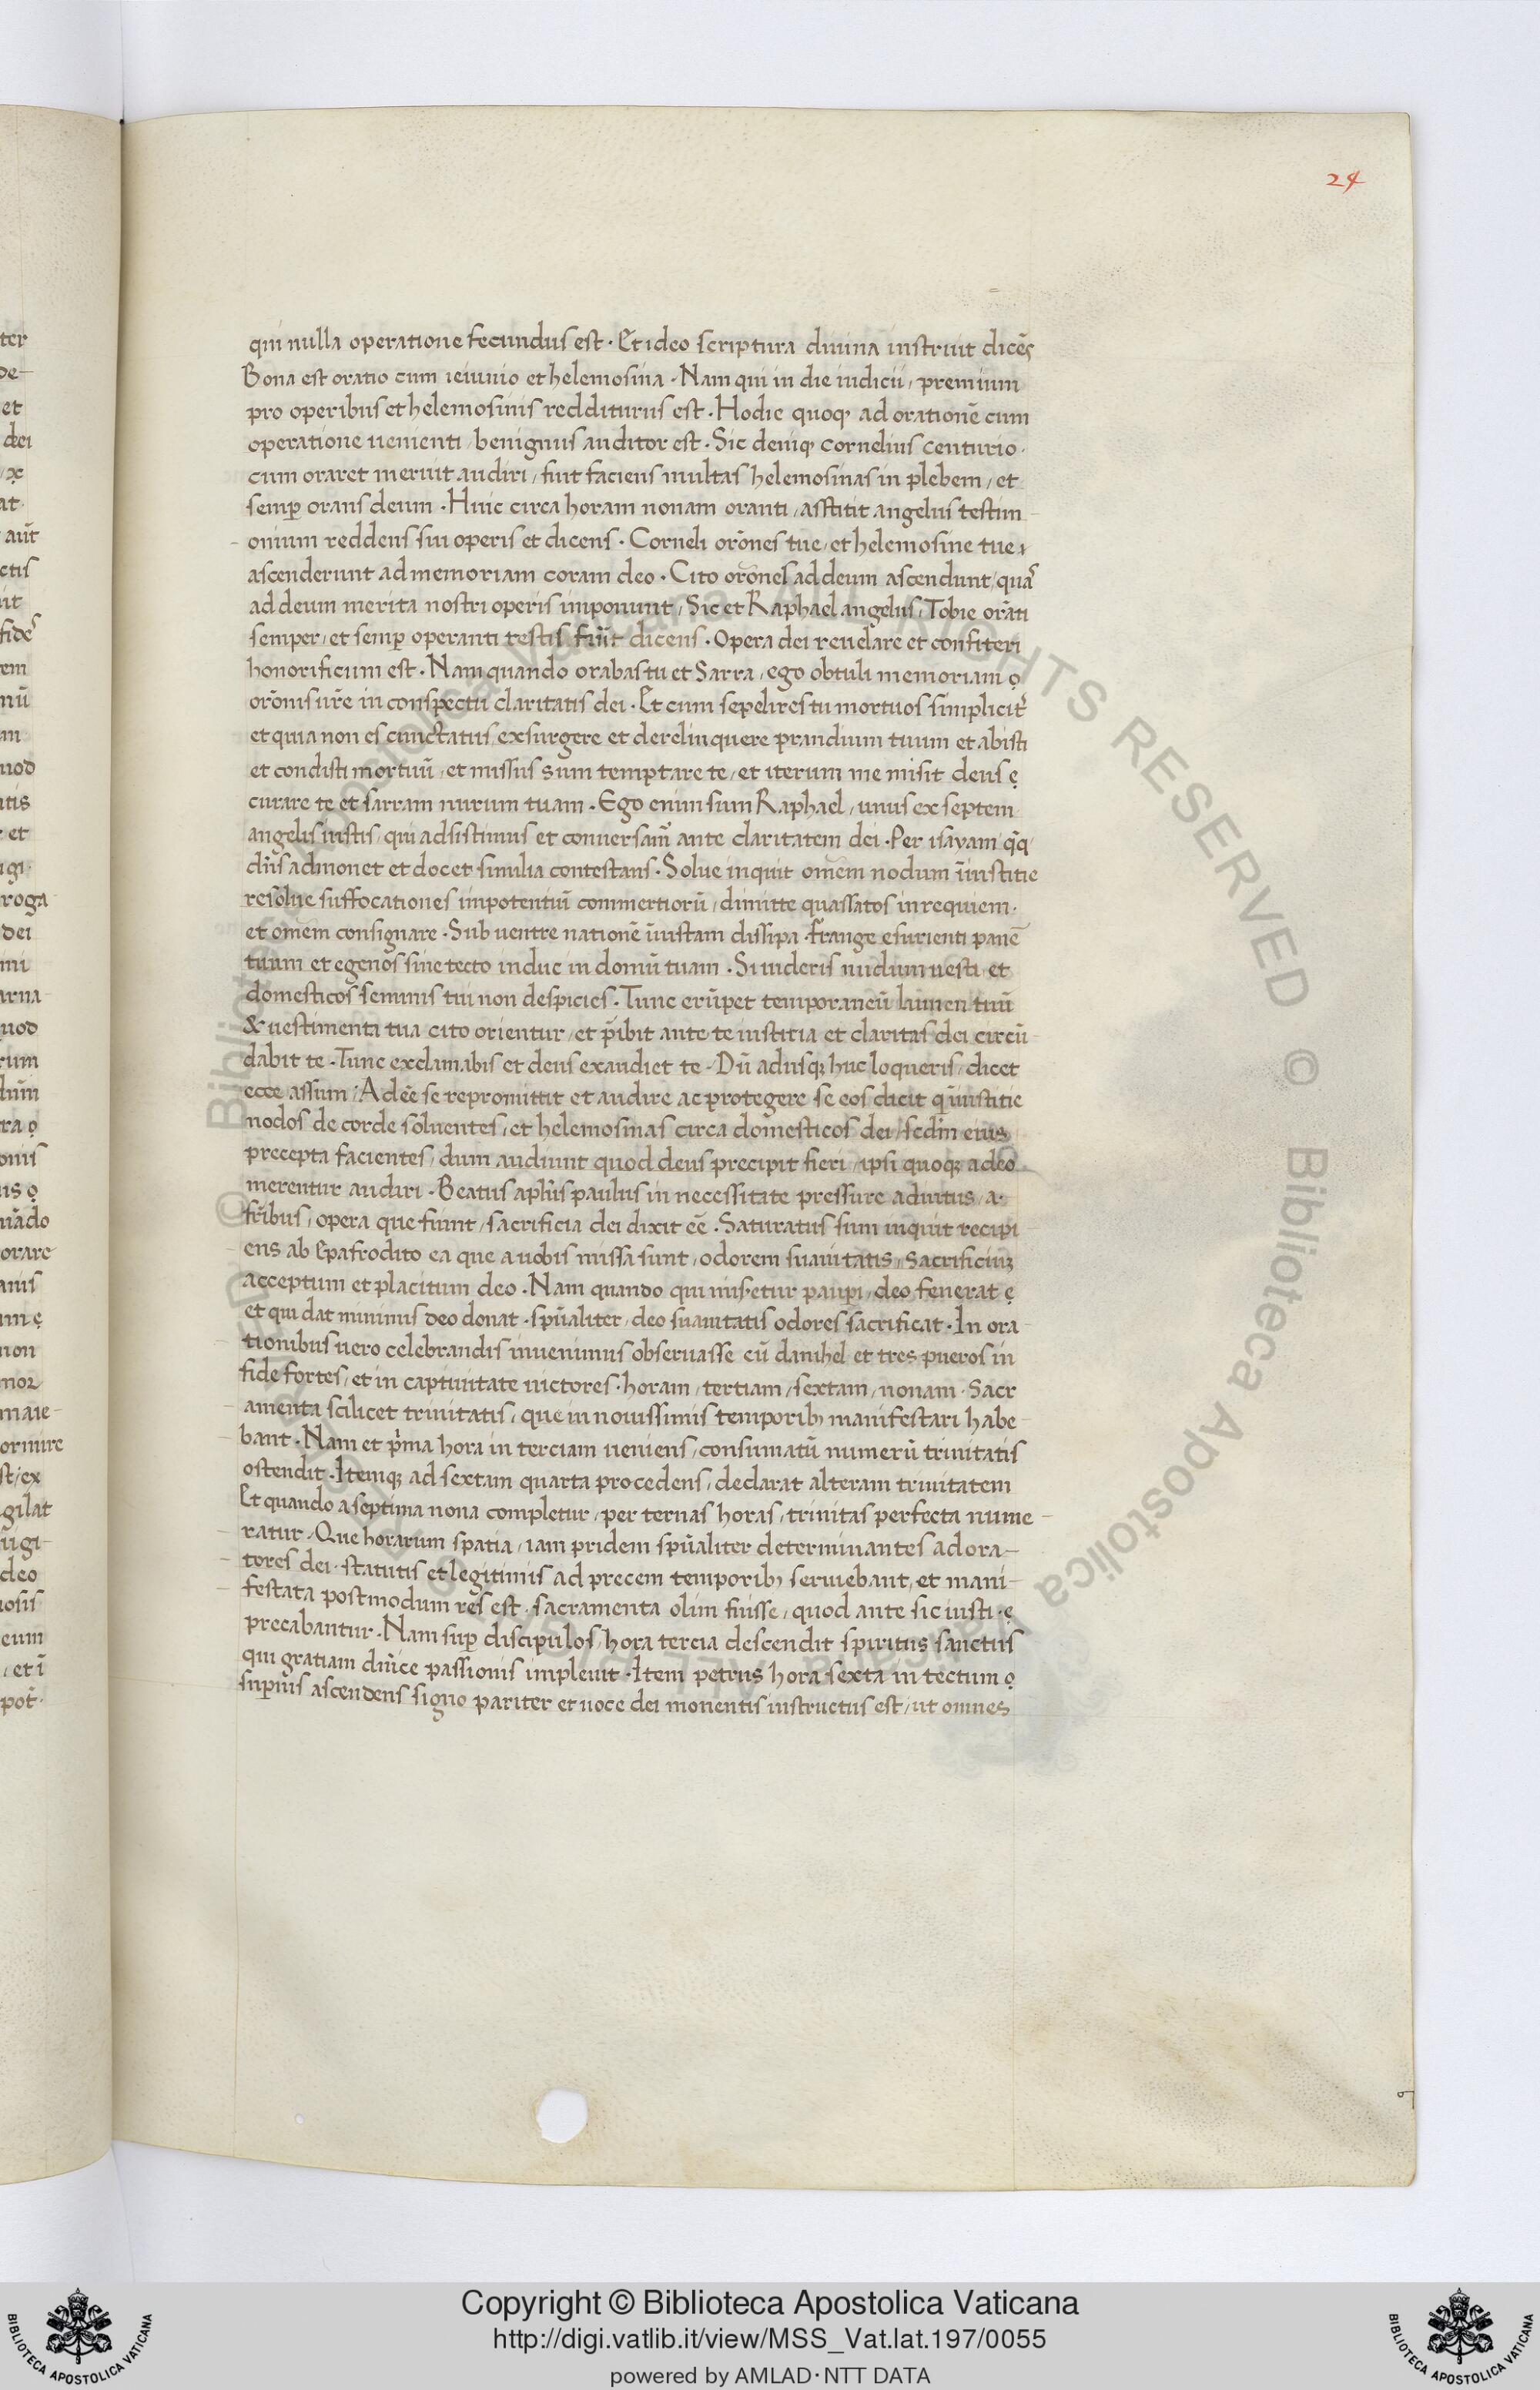 24
qui nulla operatione fecundus est · Et ideo scriptura diuina instruit dicẽs
Bona est oratio cum ieiunio et helemosina · Nam qui in die iudicii / premium
pro operibus et helemosinis redditurus est · Hodie quoqꝫ ad orationẽ cum
operatione uenienti / benignus auditor est · Sic deniqꝫ cornelius centurio ·
cum oraret meruit audiri / fuit faciens multas helemosinas in plebem / et
semꝑ orans deum · Huic circa horam nonam oranti / asstitit angelus testim
onium reddens sui operis et dicens · Corneli orõnes tue / et helemosine tue
ascenderunt ad memoriam coram deo · Cito orõnes ad deum ascendunt / quas
ad deum merita nostri operis imponunt / Sic et Raphael angelus / Tobie orãti
semper / et semꝑ operanti testis fuit dicens · Opera dei reuelare et confiteri
honorificum est · Nam quando orabas tu et Sarra / ego obtuli memoriam
orõnis ur̃e in conspectu claritatis dei · Et cum sepelires tu mortuos simplicit̃
et quia non es cunctatus exsurgere et derelinquere prandium tuum et abisti
et condisti mortuũ / et missus sum temptare te / et iterum me misit deus
curare te et sarram nurum tuam · Ego enim sum Raphael / unus ex septem
angelis iustis / qui adsistimus et conuersam᷒ ante claritatem dei · Per isayam q̃q
dñs admonet et docet similia contestans · Solue inquit om̃em nodum ĩiustitie
resolue suffocationes impotentiũ commertiorũ / dimitte quassatos in requiem ·
et om̃em consignare · Sub uentre nationẽ iniustam dissipa · frange esurienti panẽ
tuum et egenos sine tecto induc in domũ tuam · Si uideris nudum uesti / et
domesticos seminis tui non despicies · Tunc erũpet temporaneũ lumen tuũ
& uestimenti tua cito orientur / et p̃ibit ante te iustitia et claritas dei circũ
dabit te · Tunc exclamabis et deus exaudiet te · Dũ adusqꝫ huc loqueris / dicet
ecce assum · Adeẽ se repromittit et audire ac protegere se eos dicit q̃ iniustitie
nodos de corde soluentes / et helemosinas circa domesticos dei / sedm̃ eius
precepta facientes / dum audiunt quod deus precipit fieri / ipsi quoqꝫ a deo
merentur audiri · Beatus apl̃us paulus in necessitate pressure adiutus / a ·
fr̃ibus / opera que fiunt / sacrificia dei dixit eẽ · Saturatus sum inquit recipi
ens ab Epafrodito ea que a uobis missa sunt / odorem suauitatis / sacrificiuꝫ
acceptum et placitum deo · Nam quando qui misetur pauꝑi / deo fenerat
et qui dat minimis deo donat · spũaliter / deo suauitatis odores sacrificat · In ora
tionibus uero celebrandis inuenimus obseruasse cũ danihel et tres pueros in
fide fortes / et in captiuitate uictores · horam / tertiam / sextam / nonam · Sacr
amenta scilicet trinitatis / que in nouissimis temporibꝫ manifestari habe
bant · Nam et p̃ma hora in terciam ueniens / consumatũ numerũ trinitatis
ostendit · Itemqꝫ ad sextam quarta procedens / declarat alteram trinitatem
Et quando a septima nona completur / per ternas horas / trinitas perfecta nume
ratur · Que horarum spatia / iam pridem spũaliter determinantes adora
tores dei · statutis et legitimis ad precem temporibꝫ seruiebant / et mani
festata postmodum res est · sacramenta olim fuisse / quod ante sic iusti ·
precabantur · Nam suꝑ discipulos / hora tercia descendit spiritus sanctus
qui gratiam dñice passionis impleuit · Item petrus hora sexta in tectum
suꝑius ascendens signo pariter et uoce dei monentis instructus est / ut omnes
Copyright © Biblioteca Apostolica Vaticana
http://digi.vatlib.it/view/MSS_Vat.lat.197/0055
powered by AMLAD·NTT DATA